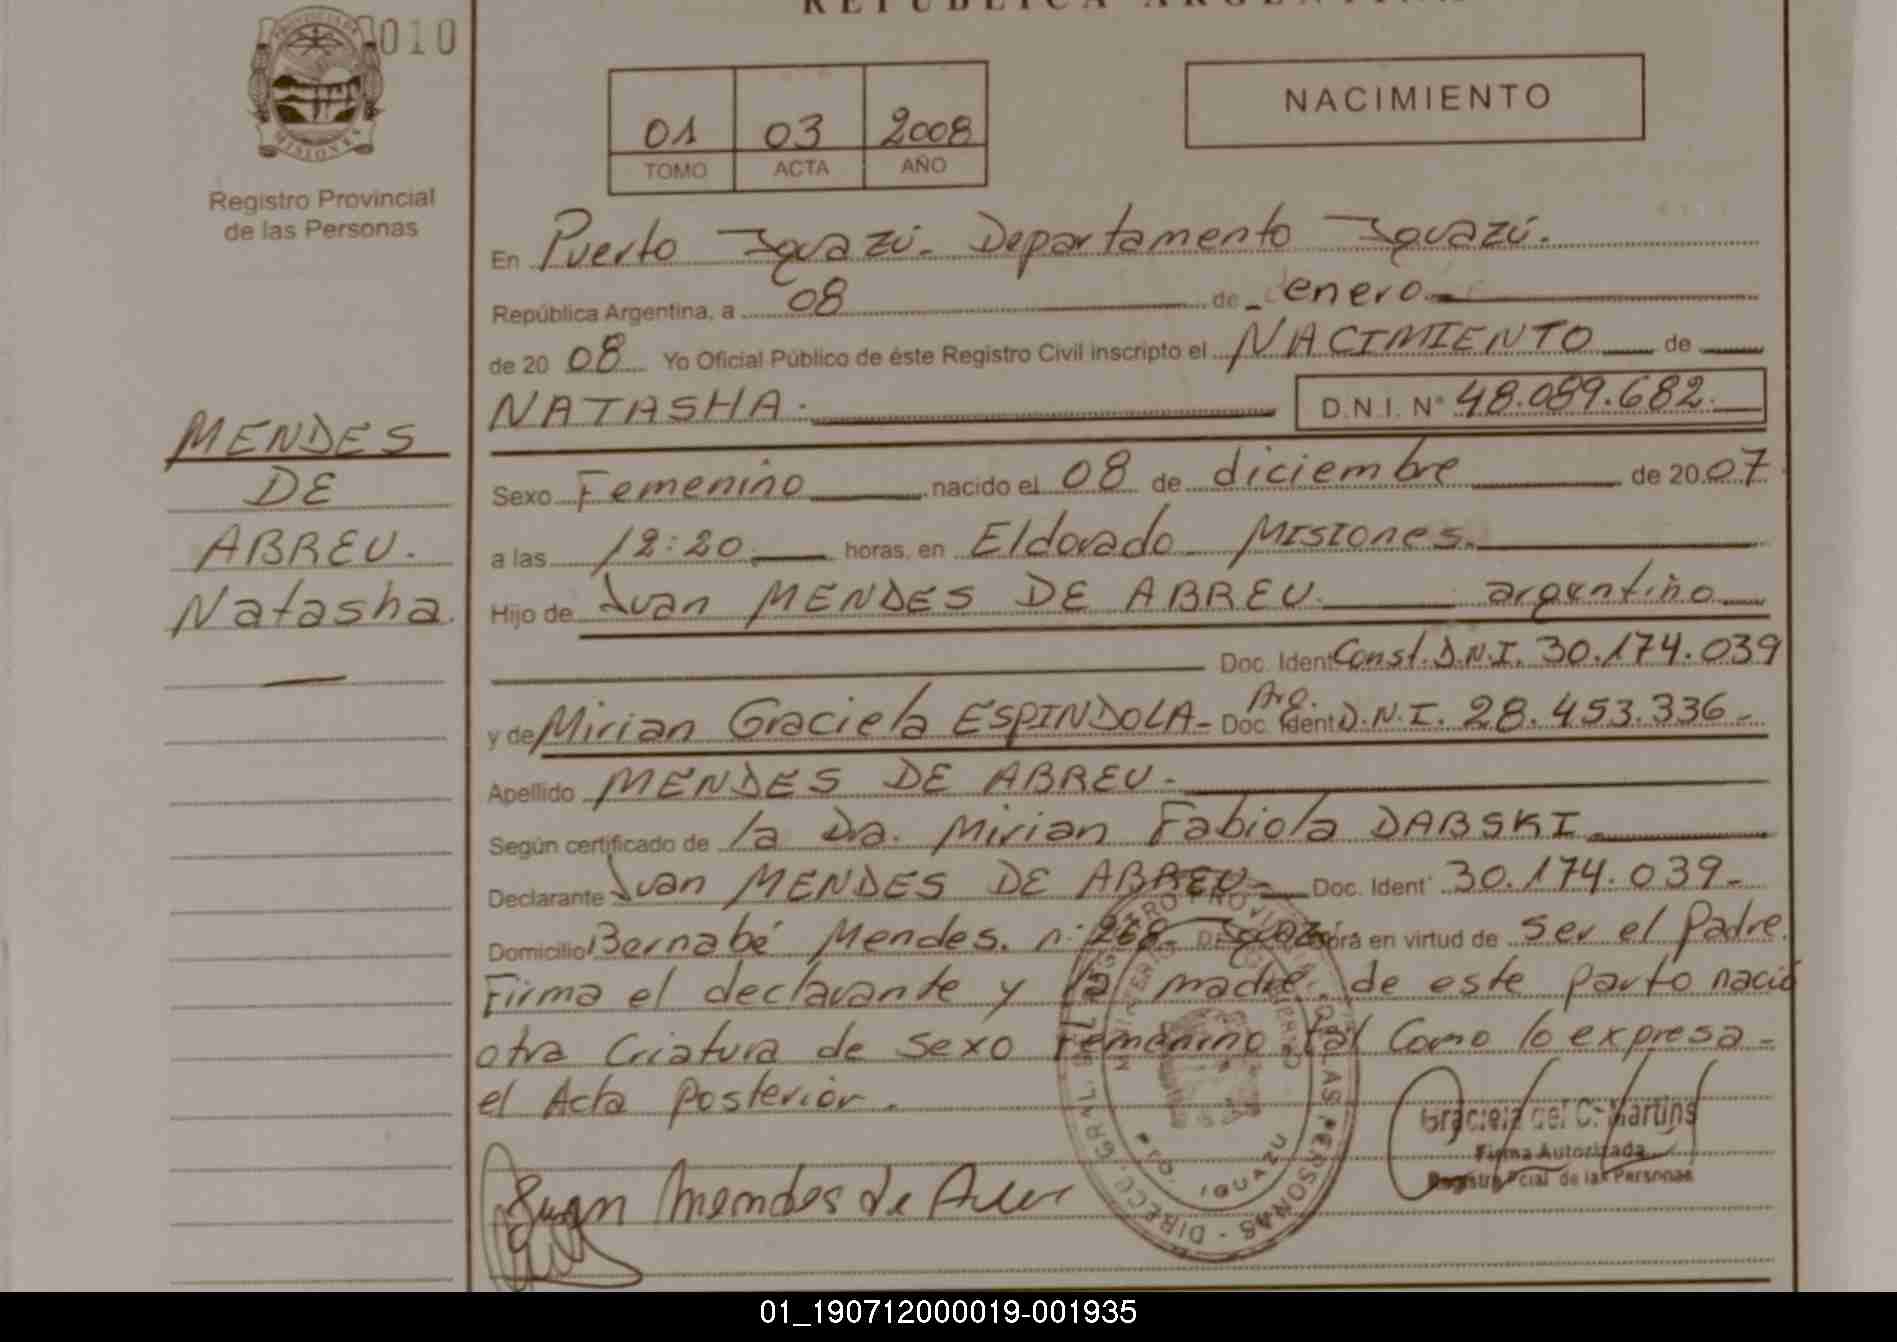 REPUBLICA ARGENTINA
PROVINCIA DE
MISIONES
010
Registro Provincial
de las Personas
01 03 2008
TOMO ACTA AÑO
NACIMIENTO
En Puerto Iguazú. Departamento Iguazú.
República Argentina, a 08 de enero
de 20 08 Yo Oficial Público de éste Registro Civil inscripto el NACIMIENTO de
NATASHA. D.N.I. N° 48.089.682.
MENDES
DE
ABREU.
Natasha.
Sexo Femenino nacido el 08 de diciembre de 20 07
a las 12:20 horas, en Eldorado Misiones.
Hijo de Juan MENDES DE ABREU. argentino
Doc. Ident Const. D.N.I. 30.174.039
y de Mirian Graciela ESPINDOLA- Arg. Doc. Ident D.N.I. 28.453.336-
Apellido MENDES DE ABREU-
Según certificado de la Dra. Mirian Fabiola DABSKI
Declarante Juan MENDES DE ABREU- Doc. Ident 30.174.039-
Domicilio Bernabé Mendes. n: Iguazú en virtud de ser el Padre.
Firma el declarante y la madre. de este parto nació
otra Criatura de sexo Femenino tal como lo expresa-
el Acta Posterior.
Juan Mendes de
Graciela del C. Martins
Firma Autorizada
Registro Pcial de las Personas
DIRECC. GRAL. DEL REGISTRO PROVINCIAL DE LAS PERSONAS
IGUAZU
01_190712000019-001935